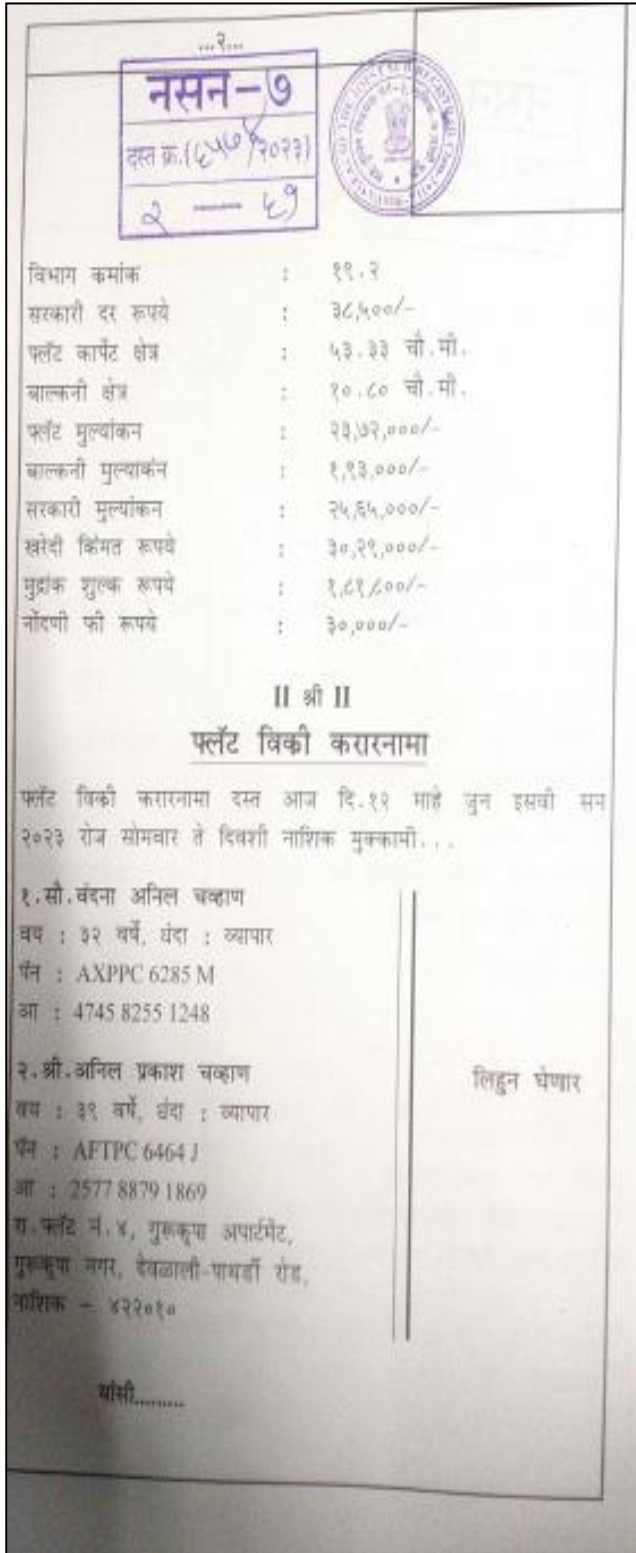 ...२...
नसन-७
दस्त क्र.( /२०२३)
२ — ६१
विभाग कमांक : १९.२
सरकारी दर रूपये : ३८,५००/-
फ्लॅट कार्पेट क्षेत्र : ५३.३३ चौ.मी.
बाल्कनी क्षेत्र : १०.८० चौ.मी.
फ्लॅट मुल्यांकन : २३,७२,०००/-
बाल्कनी मुल्याकंन : १,९३,०००/-
सरकारी मुल्यांकन : २५,६५,०००/-
खरेदी किंमत रूपये : ३०,२९,०००/-
मुद्रांक शुल्क रूपये : १,८१,८००/-
नोंदणी फी रूपये : ३०,०००/-
II श्री II
फ्लॅट विकी करारनामा
फ्लॅट विकी करारनामा दस्त आज दि.१२ माहे जुन इसवी सन
२०२३ रोज सोमवार ते दिवशी नाशिक मुक्कामी...
१.सौ.वंदना अनिल चव्हाण
वय : ३२ वर्षे, धंदा : व्यापार
पॅन : AXPPC 6285 M
आ : 4745 8255 1248
२.श्री.अनिल प्रकाश चव्हाण
वय : ३९ वर्षे, धंदा : व्यापार
पॅन : AFTPC 6464 J
आ : 2577 8879 1869
रा.फ्लॅट नं.४, गुरूकृपा अपार्टमेंट,
गुरूकृपा नगर, देवळाली-पाथर्डी रोड,
नाशिक - ४२२०१०
लिहुन घेणार
यांसी.........